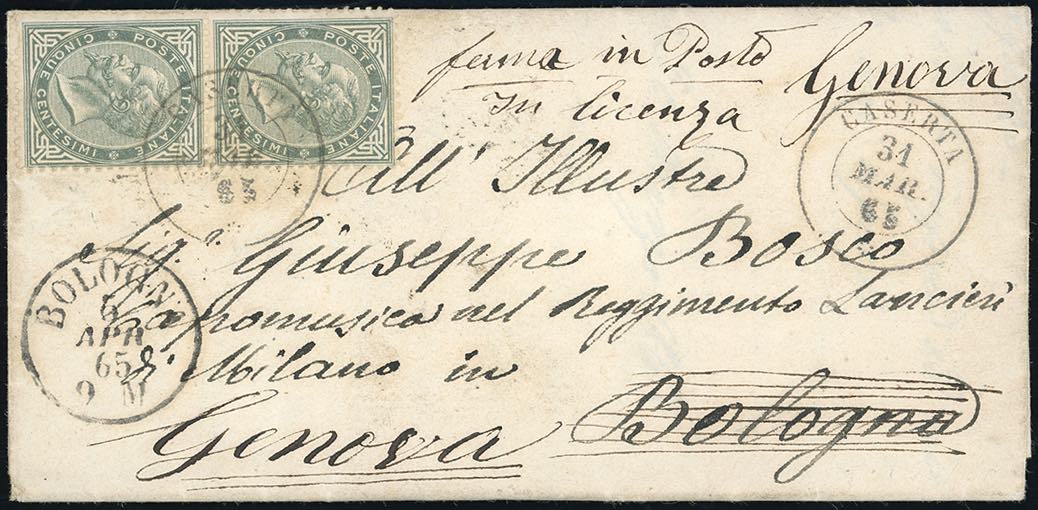 CINQUE CENTESIMI POSTE ITALIANE
CINQUE CENTESIMI POSTE ITALIANE
ferma in Posta
In licenza
Genova
CASERTA
31
MAR.
65
CASERTA
31
MAR.
65
All' Illustre
Sig.r Giuseppe Bosco
Capomusica nel Reggimento Lancieri
di Milano in
Bologna
Genova
BOLOGNA
5
APR
65
9 M